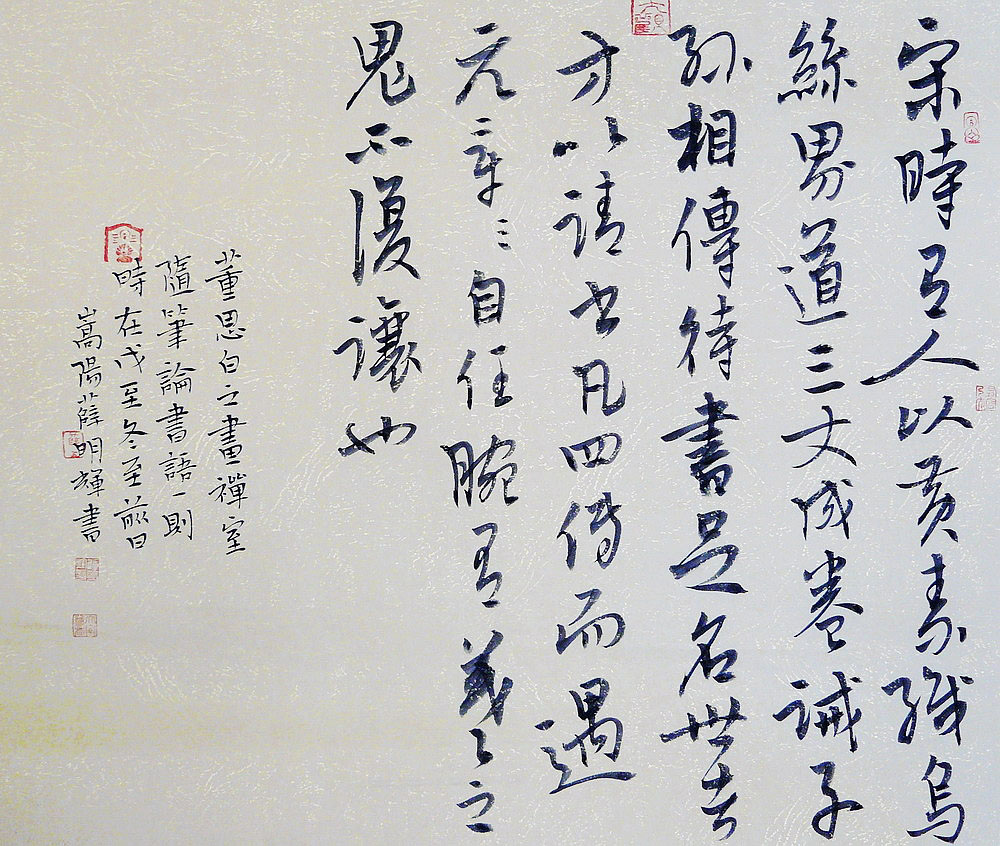 宋時有人以黄素織烏
絲界道三丈成卷誡子
孫相傳待書足名世者
方以請書凡四傳而遇
元〻章〻自任腕有羲之
鬼不復讓也
董思白之畫禪室
隨筆論書語一則
時在戊至冬至前日
嵩陽薛明輝書